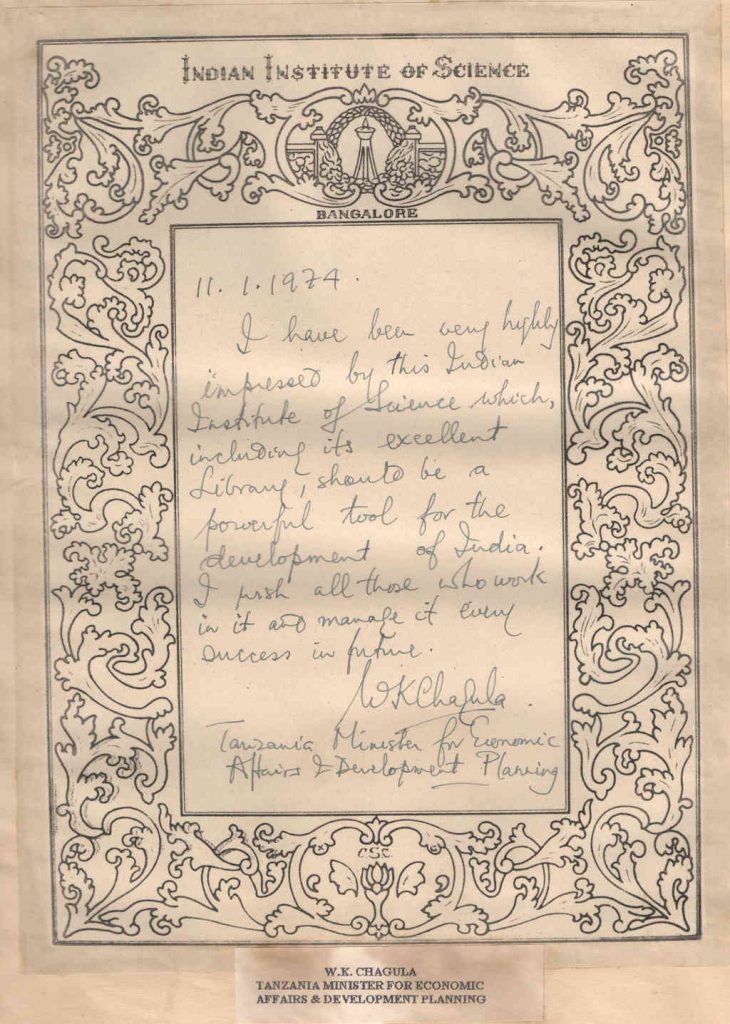 INDIAN INSTITUTE OF SCIENCE
BANGALORE
11. 1. 1974.
I have been very highly
impressed by this Indian
Institute of Science which,
including its excellent
Library, should be a
powerful tool for the
development of India.
I wish all those who work
in it and manage it every
success in future.
WKChagula.
Tanzania Minister for Economic
Affairs & Development Planning
CSC
W.K. CHAGULA
TANZANIA MINISTER FOR ECONOMIC
AFFAIRS & DEVELOPMENT PLANNING